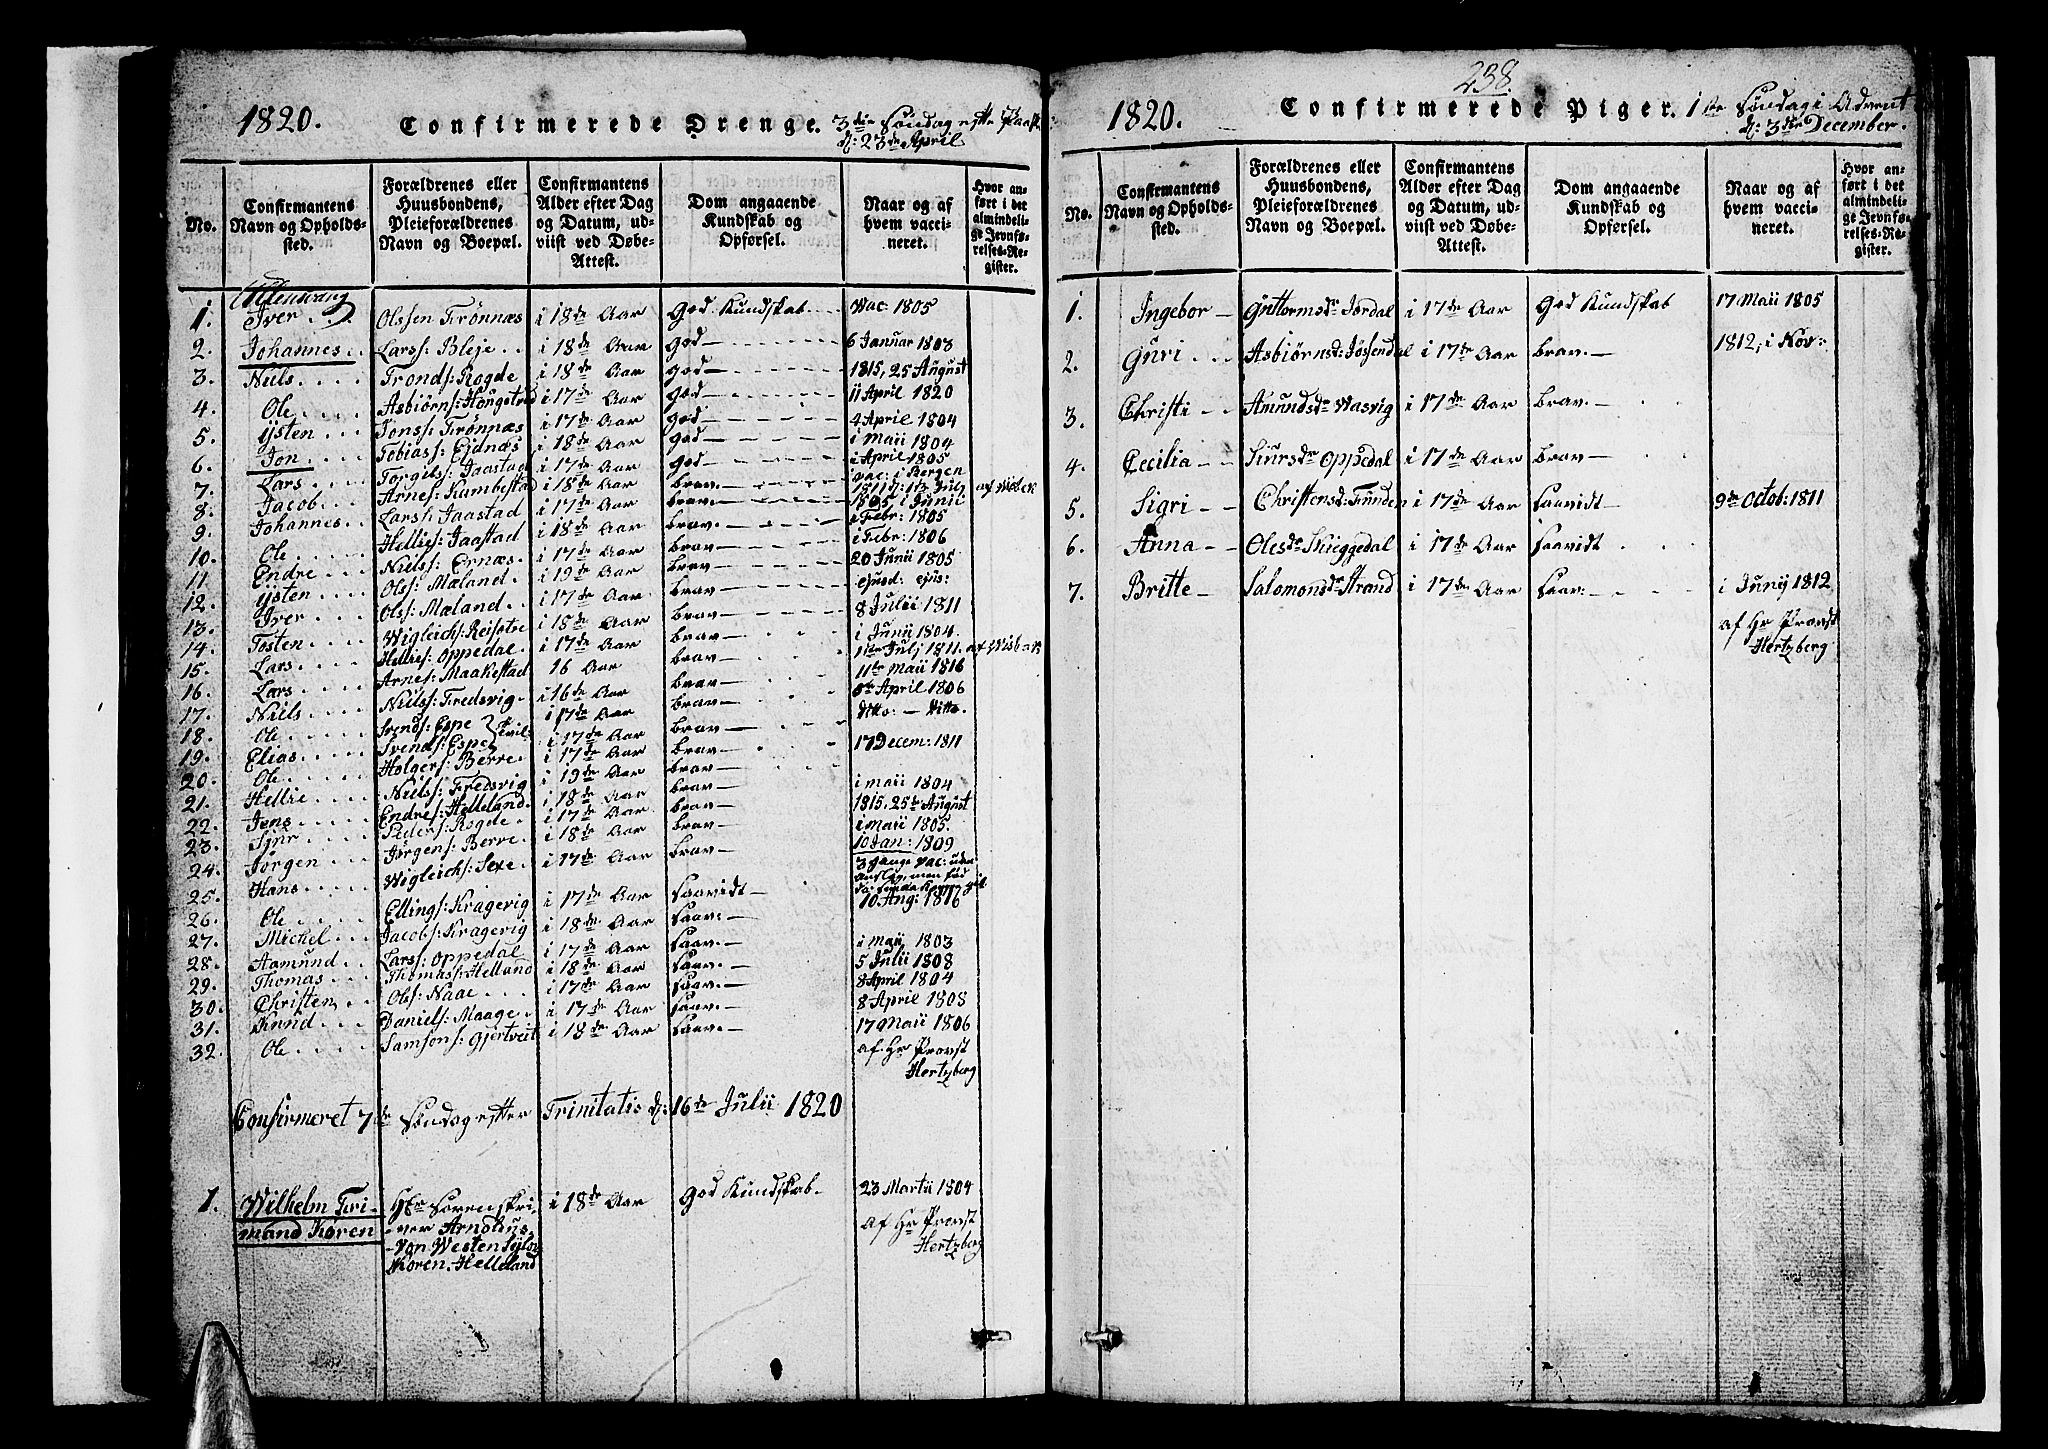 1820. Confirmerede Drenge. 3die Søndag efter Paaske
d: 23de April
No.
Confirmantens Navn og Opholdssted.
Forældrenes eller Huusbondens, Pleieforældrenes Navn og Boepæl.
Confirmantens Alder efter Dag og Datum, udviist ved Døbe-Attest.
Dom angaaende Kundskab og Opførsel.
Naar og af hvem vaccineret.
Hvor anført i det almindelige Jevnførelses-Register.
Ullensvang
1. Iver Olssen Trønnæs i 18de Aar God Kundskab Vac 1805
2. Johannes Larss: Bleje i 18de Aar God 6 Januar 1803
3. Niels Tronds: Rogde i 18de Aar God 1815, 25 August
4. Ole Asbiørns: i 17de Aar God 11 April 1820
5. Ysten Jonss: Trønnæs i 17de Aar God 4 April 1804
6. Jon Tobiass: Ejdnæs i 18de Aar God i Maii 1804
7. Lars Torgils: Jaastad i 17de Aar God i April 1805
8. Jacob Arnes: Kambestad i 18de Aar brav vac: i Bergen 1811
9. Johannes Larss: Jaastad i 17de Aar brav 1805 i Junii
10. Ole Hellies: Jaastad i 18de Aar brav i Febr: 1805
11. Endre Nielss: Ernæs i 17de Aar brav i Febr: 1806
12. Ysten Olss: Mæland i 19de Aar brav 20 Junii 1805
13. Iver Olss: Mæland i 17de Aar brav ejusd: ejus:
14. Tosten Wigleichs: Reisetre i 18de Aar brav 8 Julii 1811
15. Lars Hellies: Oppedal i 17de Aar brav i Junii 1804
16. Lars Arnes: Maakestad 16 Aar brav 11te Julj 1811.
17. Niels Nielss: Tredsvig i 16de Aar brav 11te Maii 1816
18. Ole Svends: Espe i 17de Aar brav April 1806
19. Elias Svends: Espe i 17de Aar brav Ditto Ditto
20. Ole Holgers: Berre i 17de Aar brav 17 Decem: 1811
21. Hellie Nielss: Tredsvig i 19de Aar brav i Maii 1804
22. Jens Endres: Helleland i 18de Aar brav 1815, 25te August
23. Sjur Peders: Rogde i 17de Aar brav i Maii 1805.
24. Jørgen Jørgens: Berre i 18de Aar brav 10 Jan: 1809
25. Hans Wigleichs: Sexe i 17de Aar brav 3 Gange vac: uden
26. Ole Ellings: Kragevig i 17de Aar Saavidt 10 Aug: 1816
27. Michel Jacobs: Kragevig i 18de Aar Saav:
28. Aamund Larss: Oppedal i 17de Aar Saav: i Maij 1803
29. Thomas Thomass: Helland i 18de Aar Saav: 5 Julii 1808
30. Christen Olss: Naae i 17de Aar Saav: 8 April 1804
31. Knud Daniels: Maage i 17de Aar Saav: 8 April 1808
32. Ole Samsons: Gjertveit i 18de Aar Saav: 17 Maii 1806
af Hr Provst
Hertzberg
Confirmeret 7de Søndag efter Trinitatis d: 16de Julii 1820
1. Wilhelm Frimand Koren Hr Sorenskriver Arnoldus Von Westen Sylow Koren. Helleland i 18de Aar God Kundskab. 23 Martii 1804
af Hr Provst
Hertzberg
238.
1820. Confirmerede Piger. 1ste Søndag i Advent
d: 3die December.
No.
Confirmantens Navn og Opholdssted.
Forældrenes eller Huusbondens, Pleieforældrenes Navn og Boepæl.
Confirmantens Alder efter Dag og Datum, udviist ved Døbe-Attest.
Dom angaaende Kundskab og Opførsel.
Naar og af hvem vaccineret.
Hvor anført i det almindelige Jevnførelses-Register.
1. Ingebor Guttormsdr Jordal i 17de Aar God Kundskab 17 Maii 1805
2. Guri Asbiørnsd: Jøsendal i 17de Aar brav 1812, i Nov:
3. Christi Amundsdr Wasvig i 17de Aar brav
4. Cecilia Siursdr Oppedal i 17de Aar brav
5. Sigri Christensd: Tunden i 17de Aar Saavidt 9de Octob: 1811
6. Anna Olesdr Skieggedal i 17de Aar Saavidt
7. Britte Salomonsdr Strand i 17de Aar Saav: i Junij 1812
af Hr Provst
Hertzberg